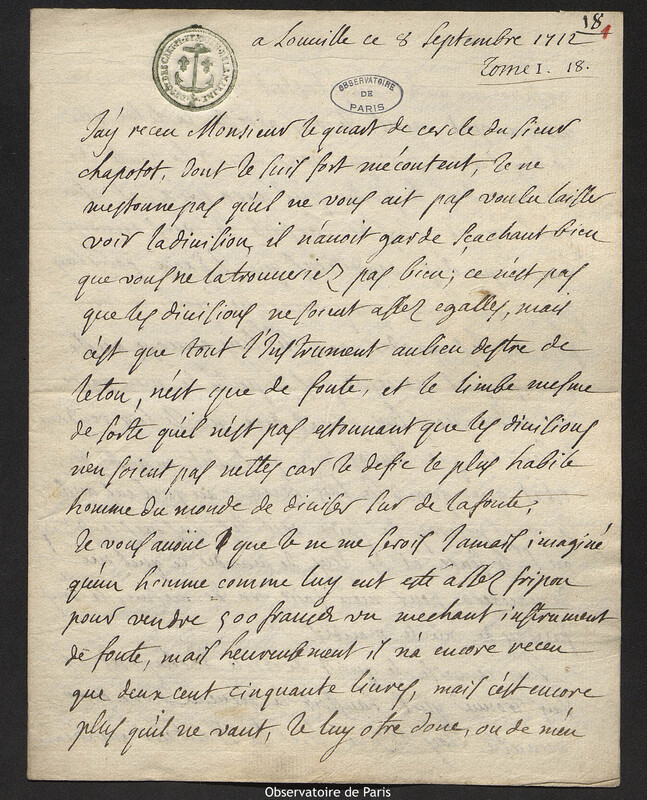 18
1
a Louville ce 8 Septembre 1712
Tome 1. 18.
OBSERVATOIRE
DE
PARIS
J'ay receu Monsieur le quart de cercle du sieur
chapotot, dont Je suis fort mécontent, Je ne
mestonne pas qu'il ne vous ait pas voulu laisser
voir la division, il n'avoit garde sçachant bien
que vous ne la trouveriez pas bien; ce n'est pas
que les divisions ne soient assez egalles, mais
c'est que tout l'Instrument au lieu destre de
leton, n'est que de fonte, et le limbe mesme
de sorte qu'il n'est pas estonnant que les divisions
n'en soient pas nettes car Je defie le plus habile
homme du monde de diviser sur de la fonte,
Je vous avoüe que Je ne me serois Jamais imaginé
qu'un homme comme luy eut esté assez fripon
pour vendre 500 francs un mechant instrument
de fonte, mais heureusement il n'a encore receu
que deux cent cinquante livres, mais c'est encore
plus qu'il ne vaut, Je luy otre donc, ou de m'en
Observatoire de Paris